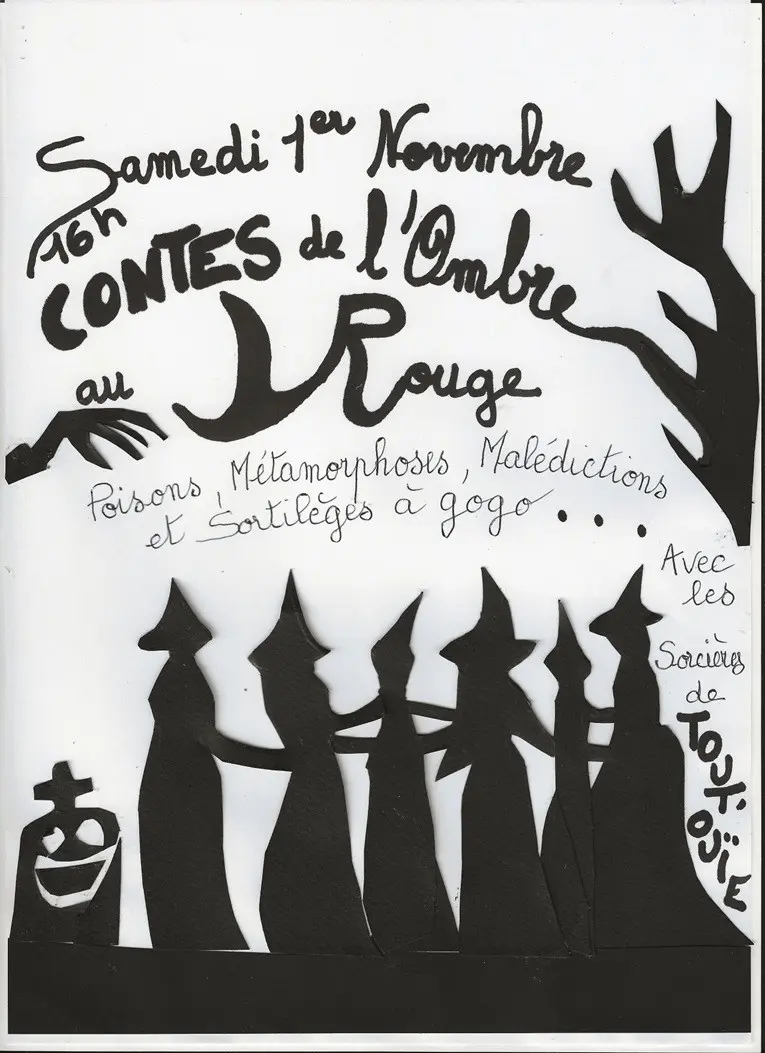 Samedi 1er Novembre
16h
CONTES de l'Ombre
au Rouge
Poisons, Métamorphoses, Malédictions
et Sortilèges à gogo...
Avec
les
Sorcières
de
TOUT'
OUÏE